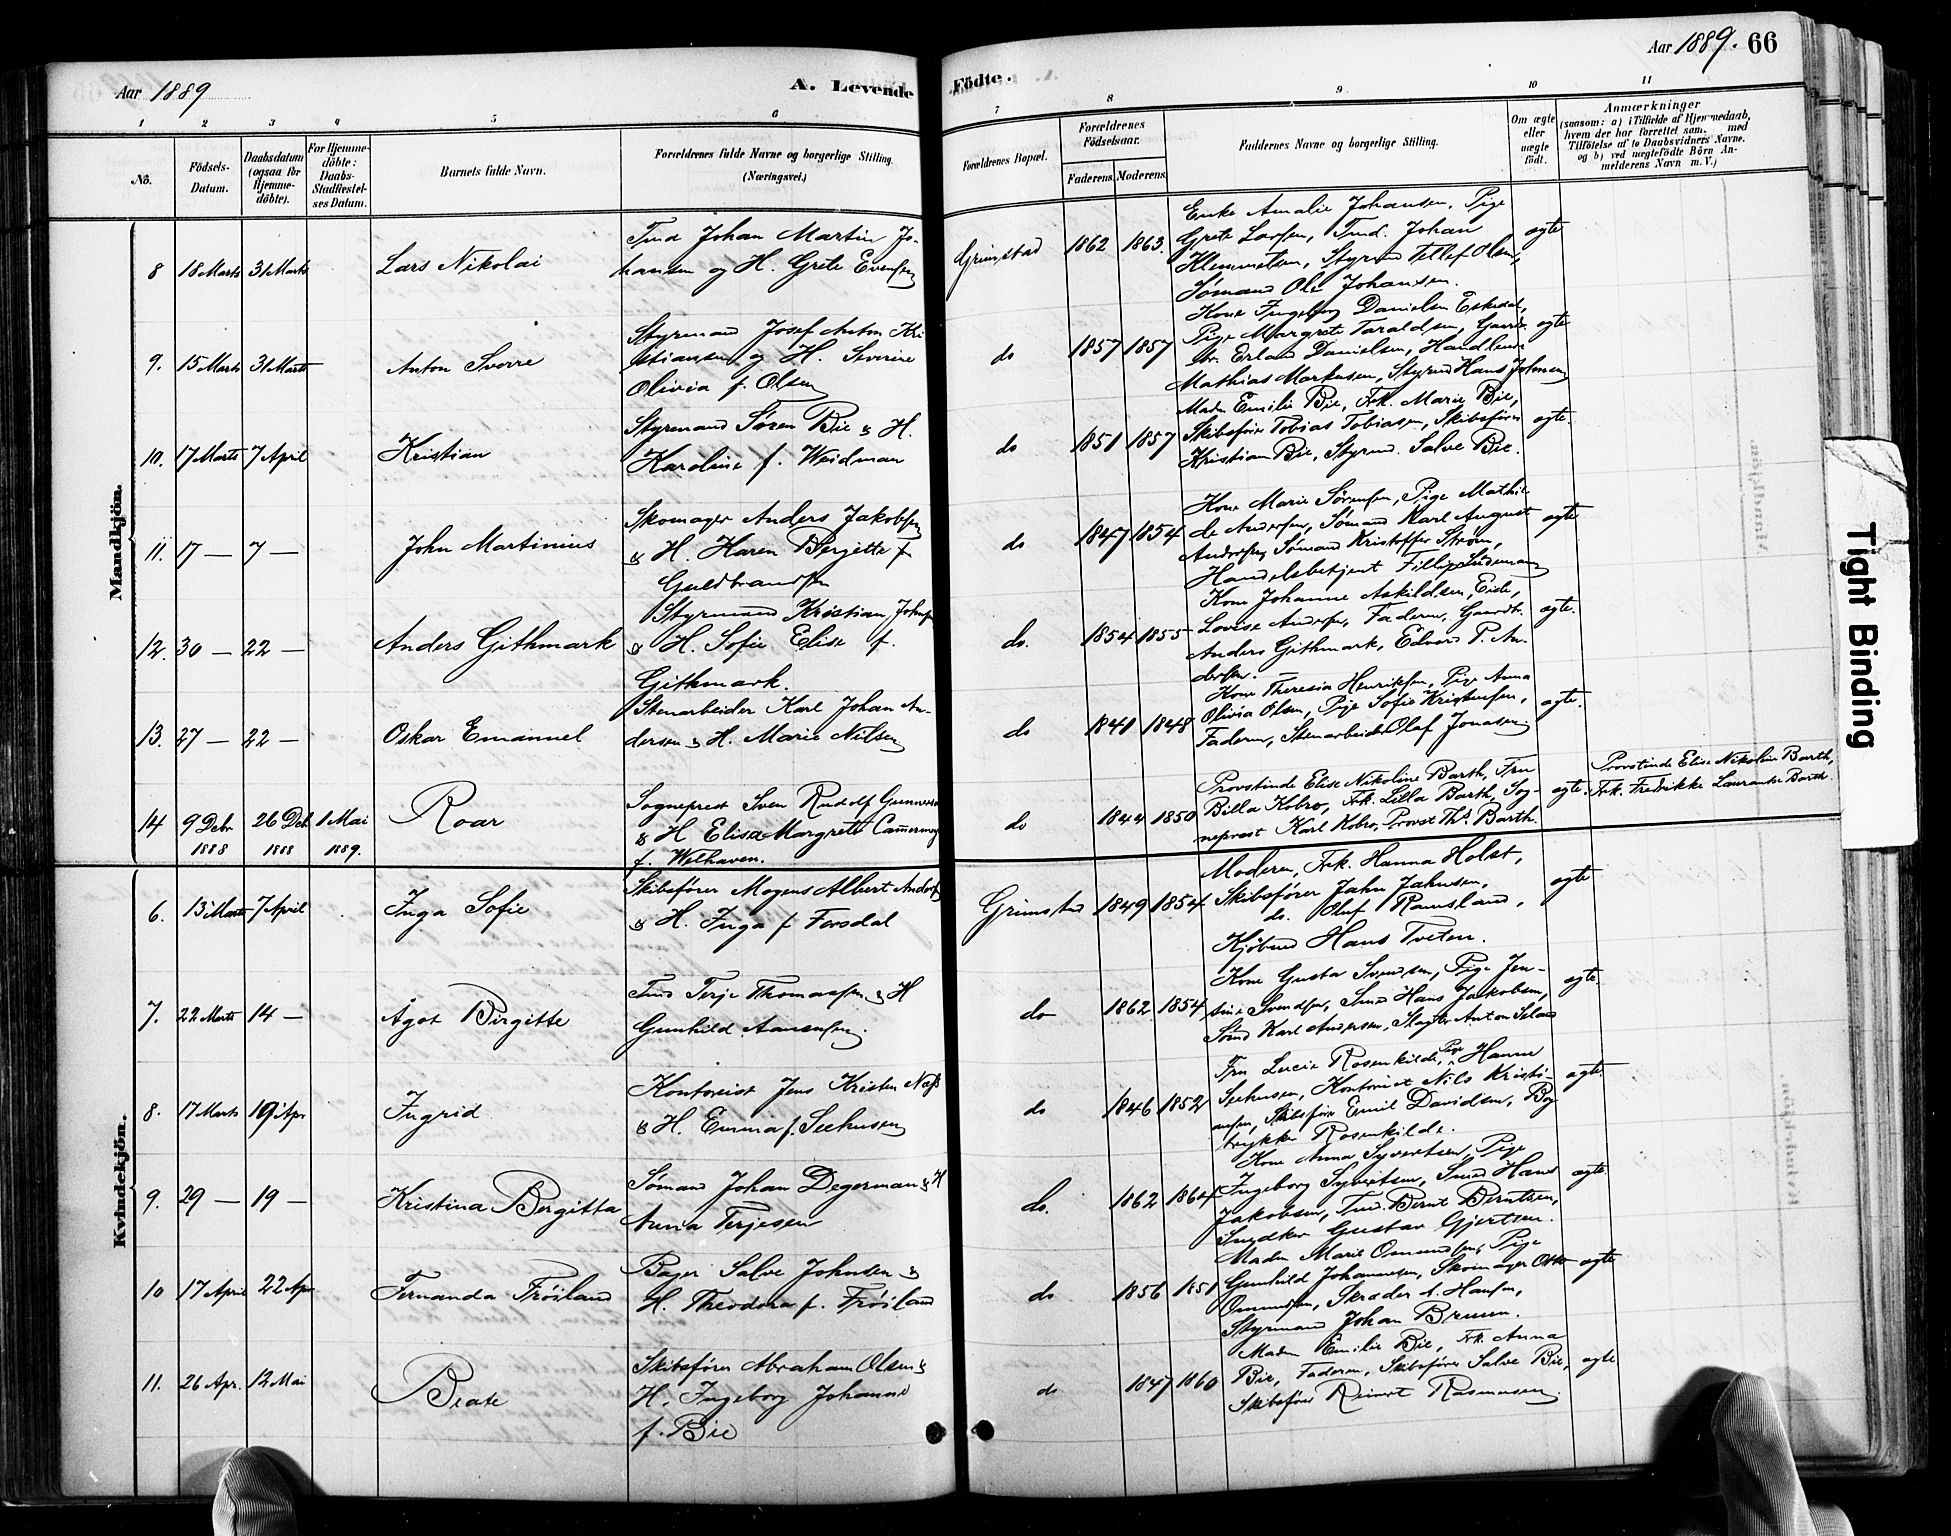 Aar 1889
A. Levende
Födte.
Aar 1889. 66
1 2 3 4 5 6 7 8 9 10 11
No.
Födsels-Datum.
Daabsdatum (ogsaa for Hjemme-döbte).
For Hjemme-döbte: Daabs-Stadfæstel-ses Datum.
Barnets fulde Navn.
Forældrenes fulde Navne og borgerlige Stilling.
(Næringsvei.)
Forældrenes Bopæl.
Forældrenes Födselsaar.
Faderens. Moderens.
Faddernes Navne og borgerlige Stilling.
Om ægte eller uægte födt.
Anmærkninger
(saasom: a) i Tilfælde af Hjemmedaab, hvem der har forrettet sam. med Tilföielse af to Daabsvidners Navne, og b) ved uægtefödte Börn Anmelderens Navn m. V.)
Mandkjön.
8 18 Marts 31 Marts Lars Nikolai
Tmd Johan Martin Jo-
hansen og H. Grete Evensen
Grimstad 1862 1863.
Enke Amalie Johansen, Pige
Grete Larsen, Tmd. Johan
Klemmetsen, Styrmd Tellef Olsen,
Sømand Ole Johansen.
ægte
9. 15 Marts 31 Marts Anton Sverre
Styrmand Josef Anton Kri
stiansen og H. Severine
Olivia f. Olsen
do 1857 1857
Kone Ingeborg Danielsen Eskedal,
Pige Margrete Taraldsen, Gaard-
br. Erland Danielsen, Handlende
Mathias Markusen, Styrmd Hans Johnsen
ægte
10. 17 Marts 7 April Kristian
Styrmand Søren Bie & H.
Karoline f. Weidman
do 1851 1857
Madm Emilie Bie, Frk. Marie Bie,
Skibsfører Tobias Tobiasen, Skibsfører
Kristian Bie, Styrmd. Salve Bie.
ægte.
11. 17 — 7 — John Martinius
Skomager Anders Jakobsen
& H. Karen Bergitte f
Guldbrandsen
do 1847 1854
Kone Marie Sørensen, Pige Mathil
de Andersen, Sømand Karl August
Andersen, Sømand Kristoffer Strøm,
Handelsbetjent Fillip
ægte
12. 30 — 22 — Anders Githmark
Styrmand Kristian Johnsen
& H. Sofie Elise f.
Githmark.
do. 1854 1855
Kone Johanne Askildsen, Eide,
Lovise Andersen, Faderen, Gaardb.
Anders Githmark, Edvard P. An-
dersen.
ægte.
13. 27 — 22 — Oskar Emanuel
Stenarbeider Karl Johan An-
dersen & H. Marie Nilsen
do 1840 1848
Kone Theresia Henriksen, Pige Anna
Olivia Olsen, Pige Sofie Kristensen,
Faderen, Stenarbeider Olaf Jonasen
ægte.
14 9 Debr 1888 26 Deb 1888 1 Mai 1889. Roar
Sogneprest Sven Rudolf Gunnersen
& H Elisa Margrete Cammermeyer
f. Welhaven.
do 1844 1850
Provstinde Elise Nikoline Barth, Fru
Billa Kobro, Frk. Lilla Barth, Sog-
neprest Karl Kobro, Provst Ths. Barth.
ægte.
Provstinde Elise Nikoline Barth,
Frk. Fredrikke Laurantse Barth.
Kvindekjön.
6. 13 Marts 7 April Inga Sofie
Skibsfører Mogens Albert Andersen
& H. Inga f Forsdal
Grimstad 1849 1854
Moderen, Frk. Hanna Holst,
Skibsfører Jahn Jahnsen,
do. Oluf Ramsland,
Kjøbmd Hans Tveten.
ægte
7. 22 Marts 14 — Ågot Birgitte
Tmd Terje Thomassen & H
Gunhild Aanensen.
do 1862 1854
Kone Gusta Svendsen, Pige Jen-
sine Svendsen, Smd Hans Jakobsen,
Sømd Karl Andersen, Slagter Anton
ægte.
8. 17 Marts 19 Apr Ingrid
Kontorist Jens Kristen Næss
& H. Emma f. Seehusen
do 1846 1852
Fru Lucie Rosenkilde, Pige Hanne
Seehusen, Kontorist Nils Kristi-
ansen, Skibsfører Emil Davidsen, Bog
trykker Rosenkilde.
ægte.
9. 29 — 19 — Kristina Bergitta
Sømand Johan Degerman & H
Anna Terjesen
do. 1862 1864
Kone Anna Syvertsen, Pige
Ingeborg Syvertsen, Smd Hans
Jakobsen, Tmd. Bernt Berntsen,
Snedker Gustav Gjertsen.
ægte
10 17 April 22 Apr Fernanda Frøiland
Bager Salve Johnsen &
H. Theodora f. Frøiland
do 1856 1851
Madm Marie Omundsen, Pige
Gunhild Johannesen, Skomager Otto
Omundsen, Skræder A. Hansen,
Styrmand Johan Breuun.
ægte
11. 26 Apr. 12 Mai Beate
Skibsfører Abraham Olsen &
H. Ingeborg Johanne
f. Bie
do 1847 1860
Madm Emilie Bie, Frk. Anna
Bie, Faderen, Skibsfører Salve Bie,
Skibsfører Reinert Rasmussen.
ægte
Tight Binding